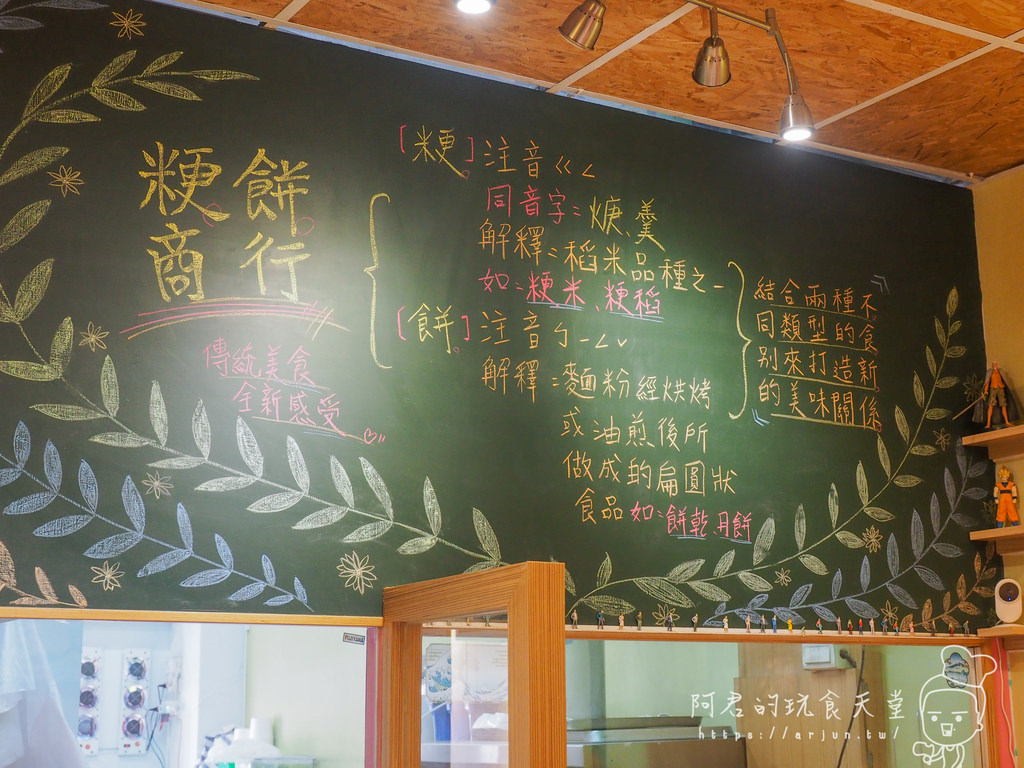 粳餅
商行
傳統美食
全新感受
[粳]注音ㄍㄥ
同音字:焿、羹
解釋:稻米品種之一
如:粳米、粳稻
[餅]注音ㄅㄧㄥˇ
解釋:麵粉經烘烤
或油煎後所
做成的扁圓狀
食品如:餅乾月餅
結合兩種不
同類型的食
別來打造新
的美味關係
阿君的玩食天堂
https://arjun.tw/